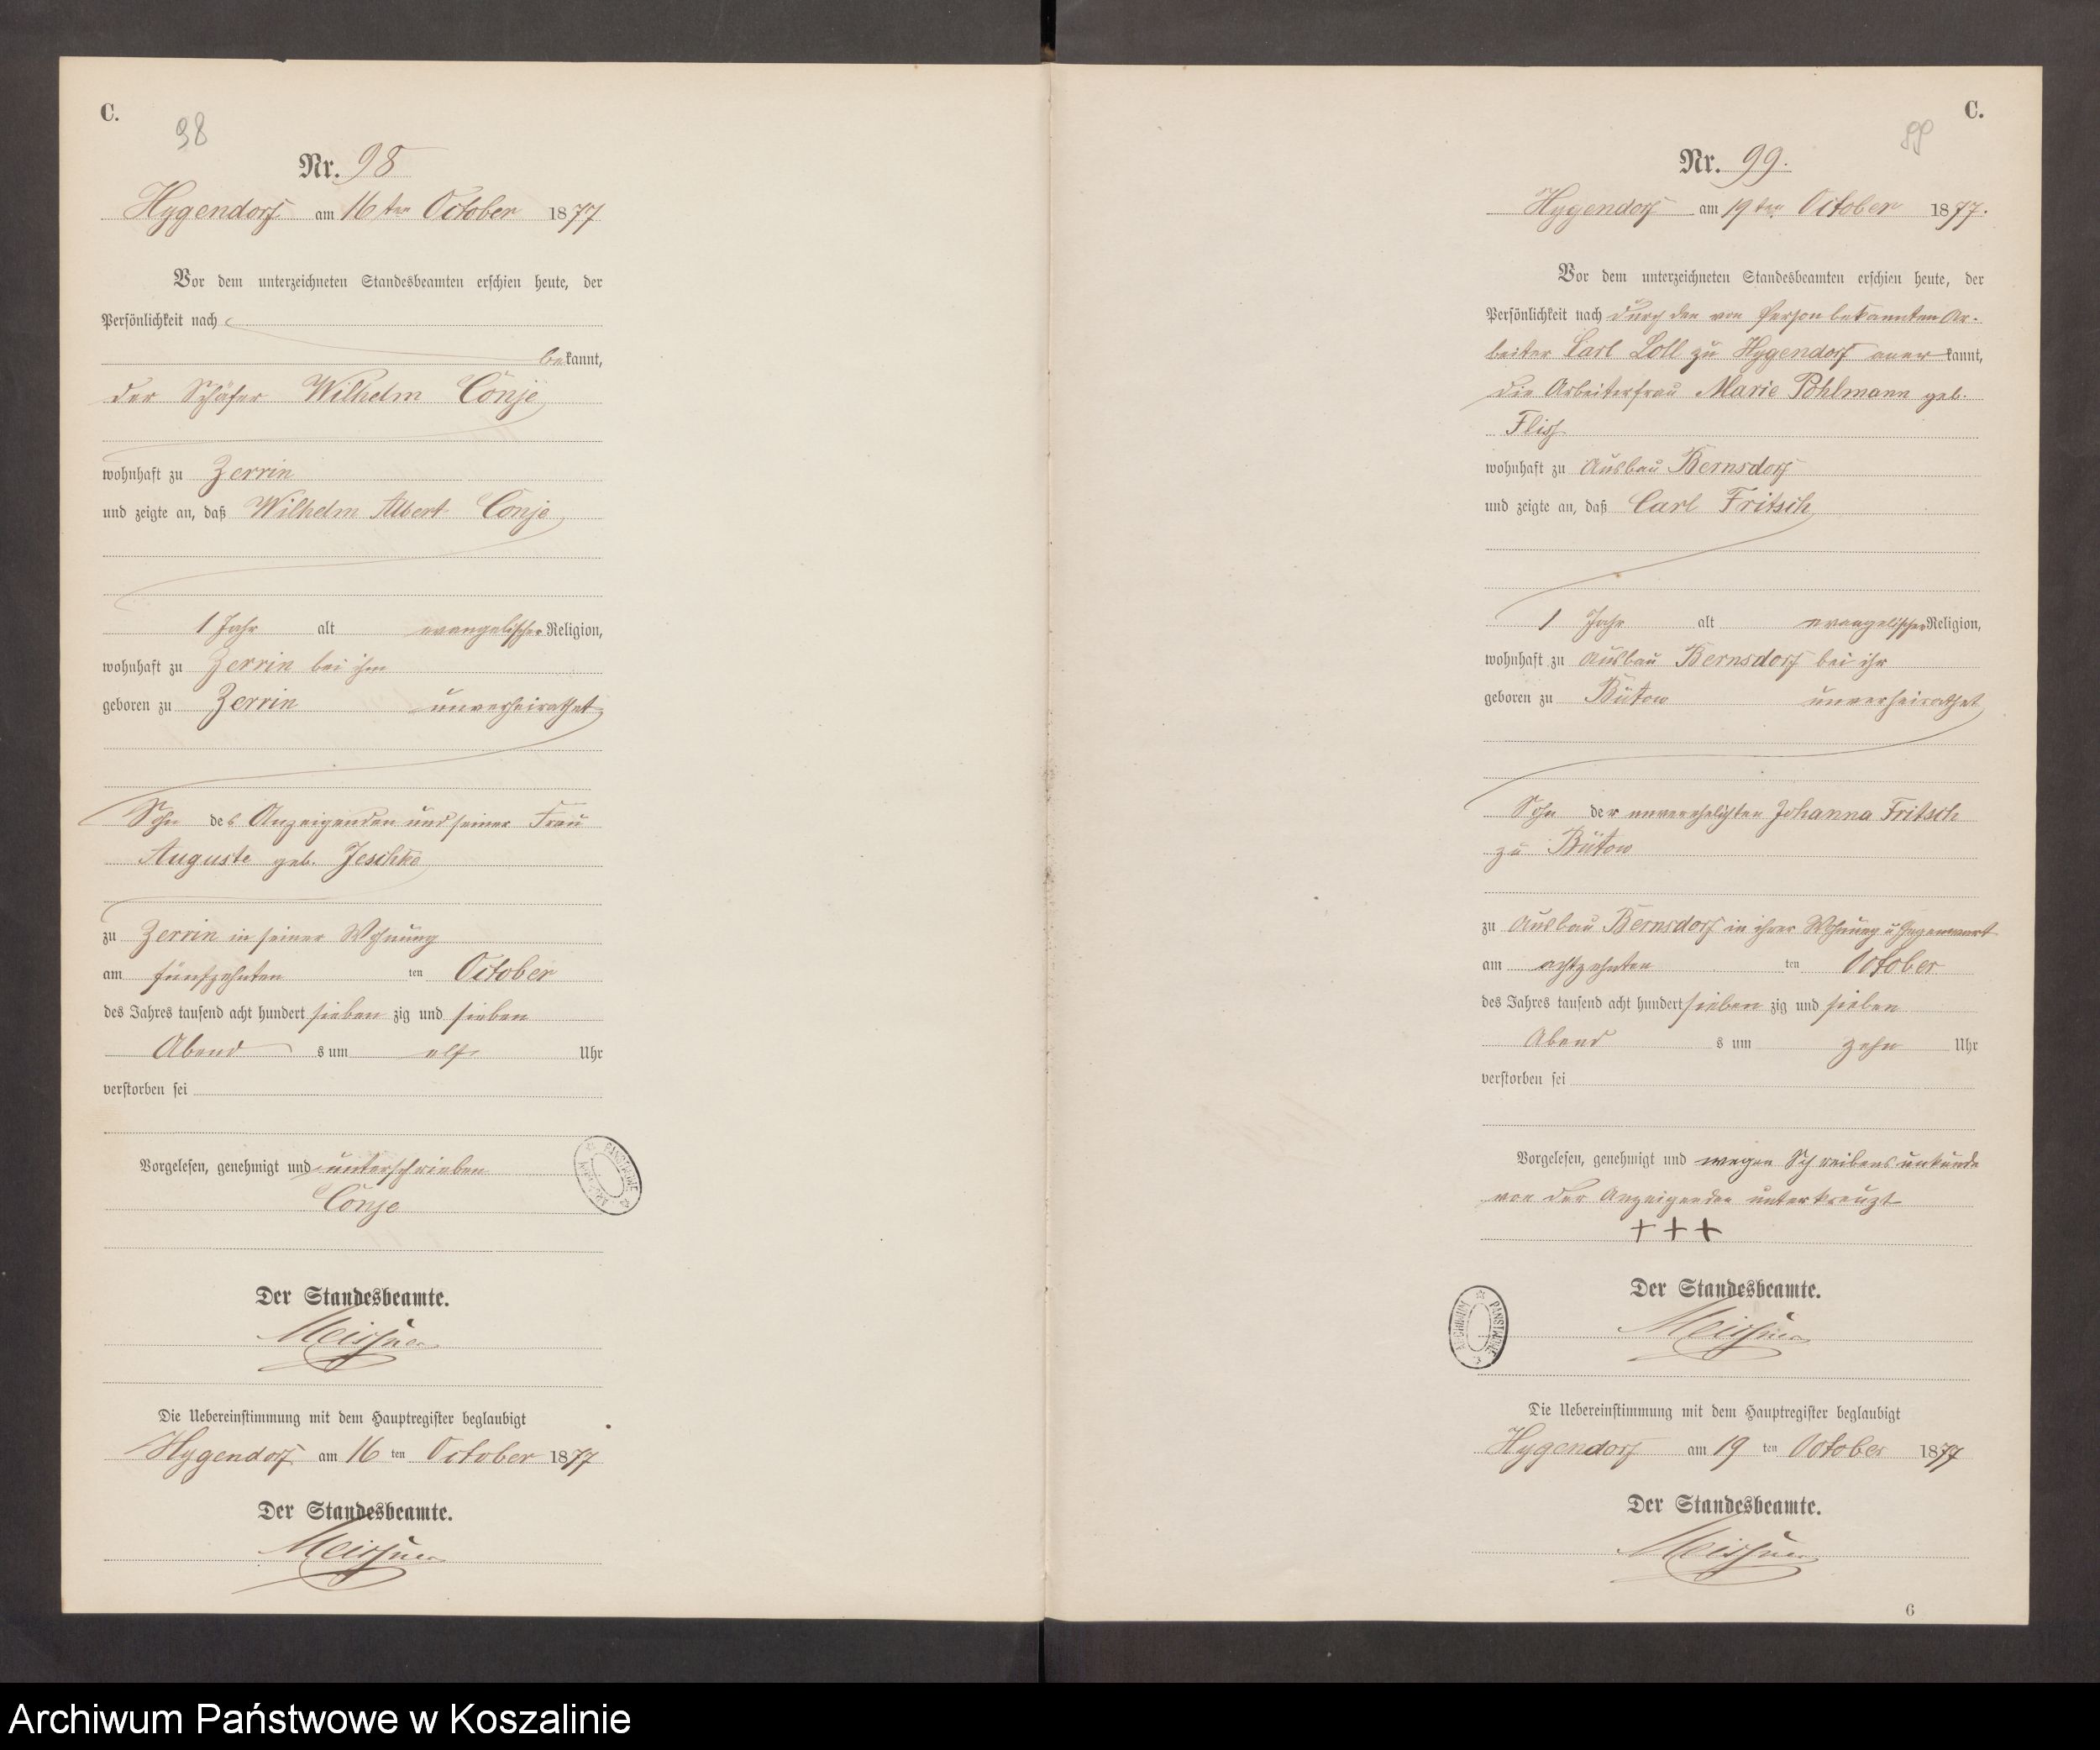 C.
98
Nr. 98
Hygendorf am 16ten October 1877
Vor dem unterzeichneten Standesbeamten erschien heute, der
Persönlichkeit nach
bekannt,
der Schäfer Wilhelm Conje
wohnhaft zu Zerrin
und zeigte an, daß Wilhelm Albert Conje
1 Jahr alt evangelischer Religion,
wohnhaft zu Zerrin bei ihm
geboren zu Zerrin unverheirathet
Sohn des Anzeigenden und seiner Frau
Auguste geb. Jeschke
zu Zerrin in seiner Wohnung
am fünfzehnten ten October
des Jahres tausend acht hundert sieben zig und sieben
Abend s um elf Uhr
verstorben sei
Vorgelesen, genehmigt und unterschrieben
Conje
Der Standesbeamte.
Meissner
Die Uebereinstimmung mit dem Hauptregister beglaubigt
Hygendorf am 16 ten October 1877
Der Standesbeamte.
Meissner
ARCHIWUM PAŃSTWOWE
C.
99
Nr. 99.
Hygendorf am 19ten October 1877.
Vor dem unterzeichneten Standesbeamten erschien heute, der
Persönlichkeit nach durch den von Person bekannten Ar-
beiter Carl Loll zu Hygendorf anerkannt,
die Arbeiterfrau Marie Pohlmann geb.
Flisch
wohnhaft zu Ausbau Bernsdorf
und zeigte an, daß Carl Fritsch
1 Jahr alt evangelischer Religion,
wohnhaft zu Ausbau Bernsdorf bei ihr
geboren zu Bütow unverheirathet
Sohn der unverehelichten Johanna Fritsch
zu Bütow
zu Ausbau Bernsdorf in ihrer Wohnung u Gegenwart
am achtzehnten ten October
des Jahres tausend acht hundert sieben zig und sieben
Abend s um zehn Uhr
verstorben sei
Vorgelesen, genehmigt und wegen Schreibensunkunde
von der Anzeigenden unterkreuzt
+++
Der Standesbeamte.
Meissner
ARCHIWUM PAŃSTWOWE
Die Uebereinstimmung mit dem Hauptregister beglaubigt
Hygendorf am 19 ten October 1877
Der Standesbeamte.
Meissner
6
Archiwum Państwowe w Koszalinie